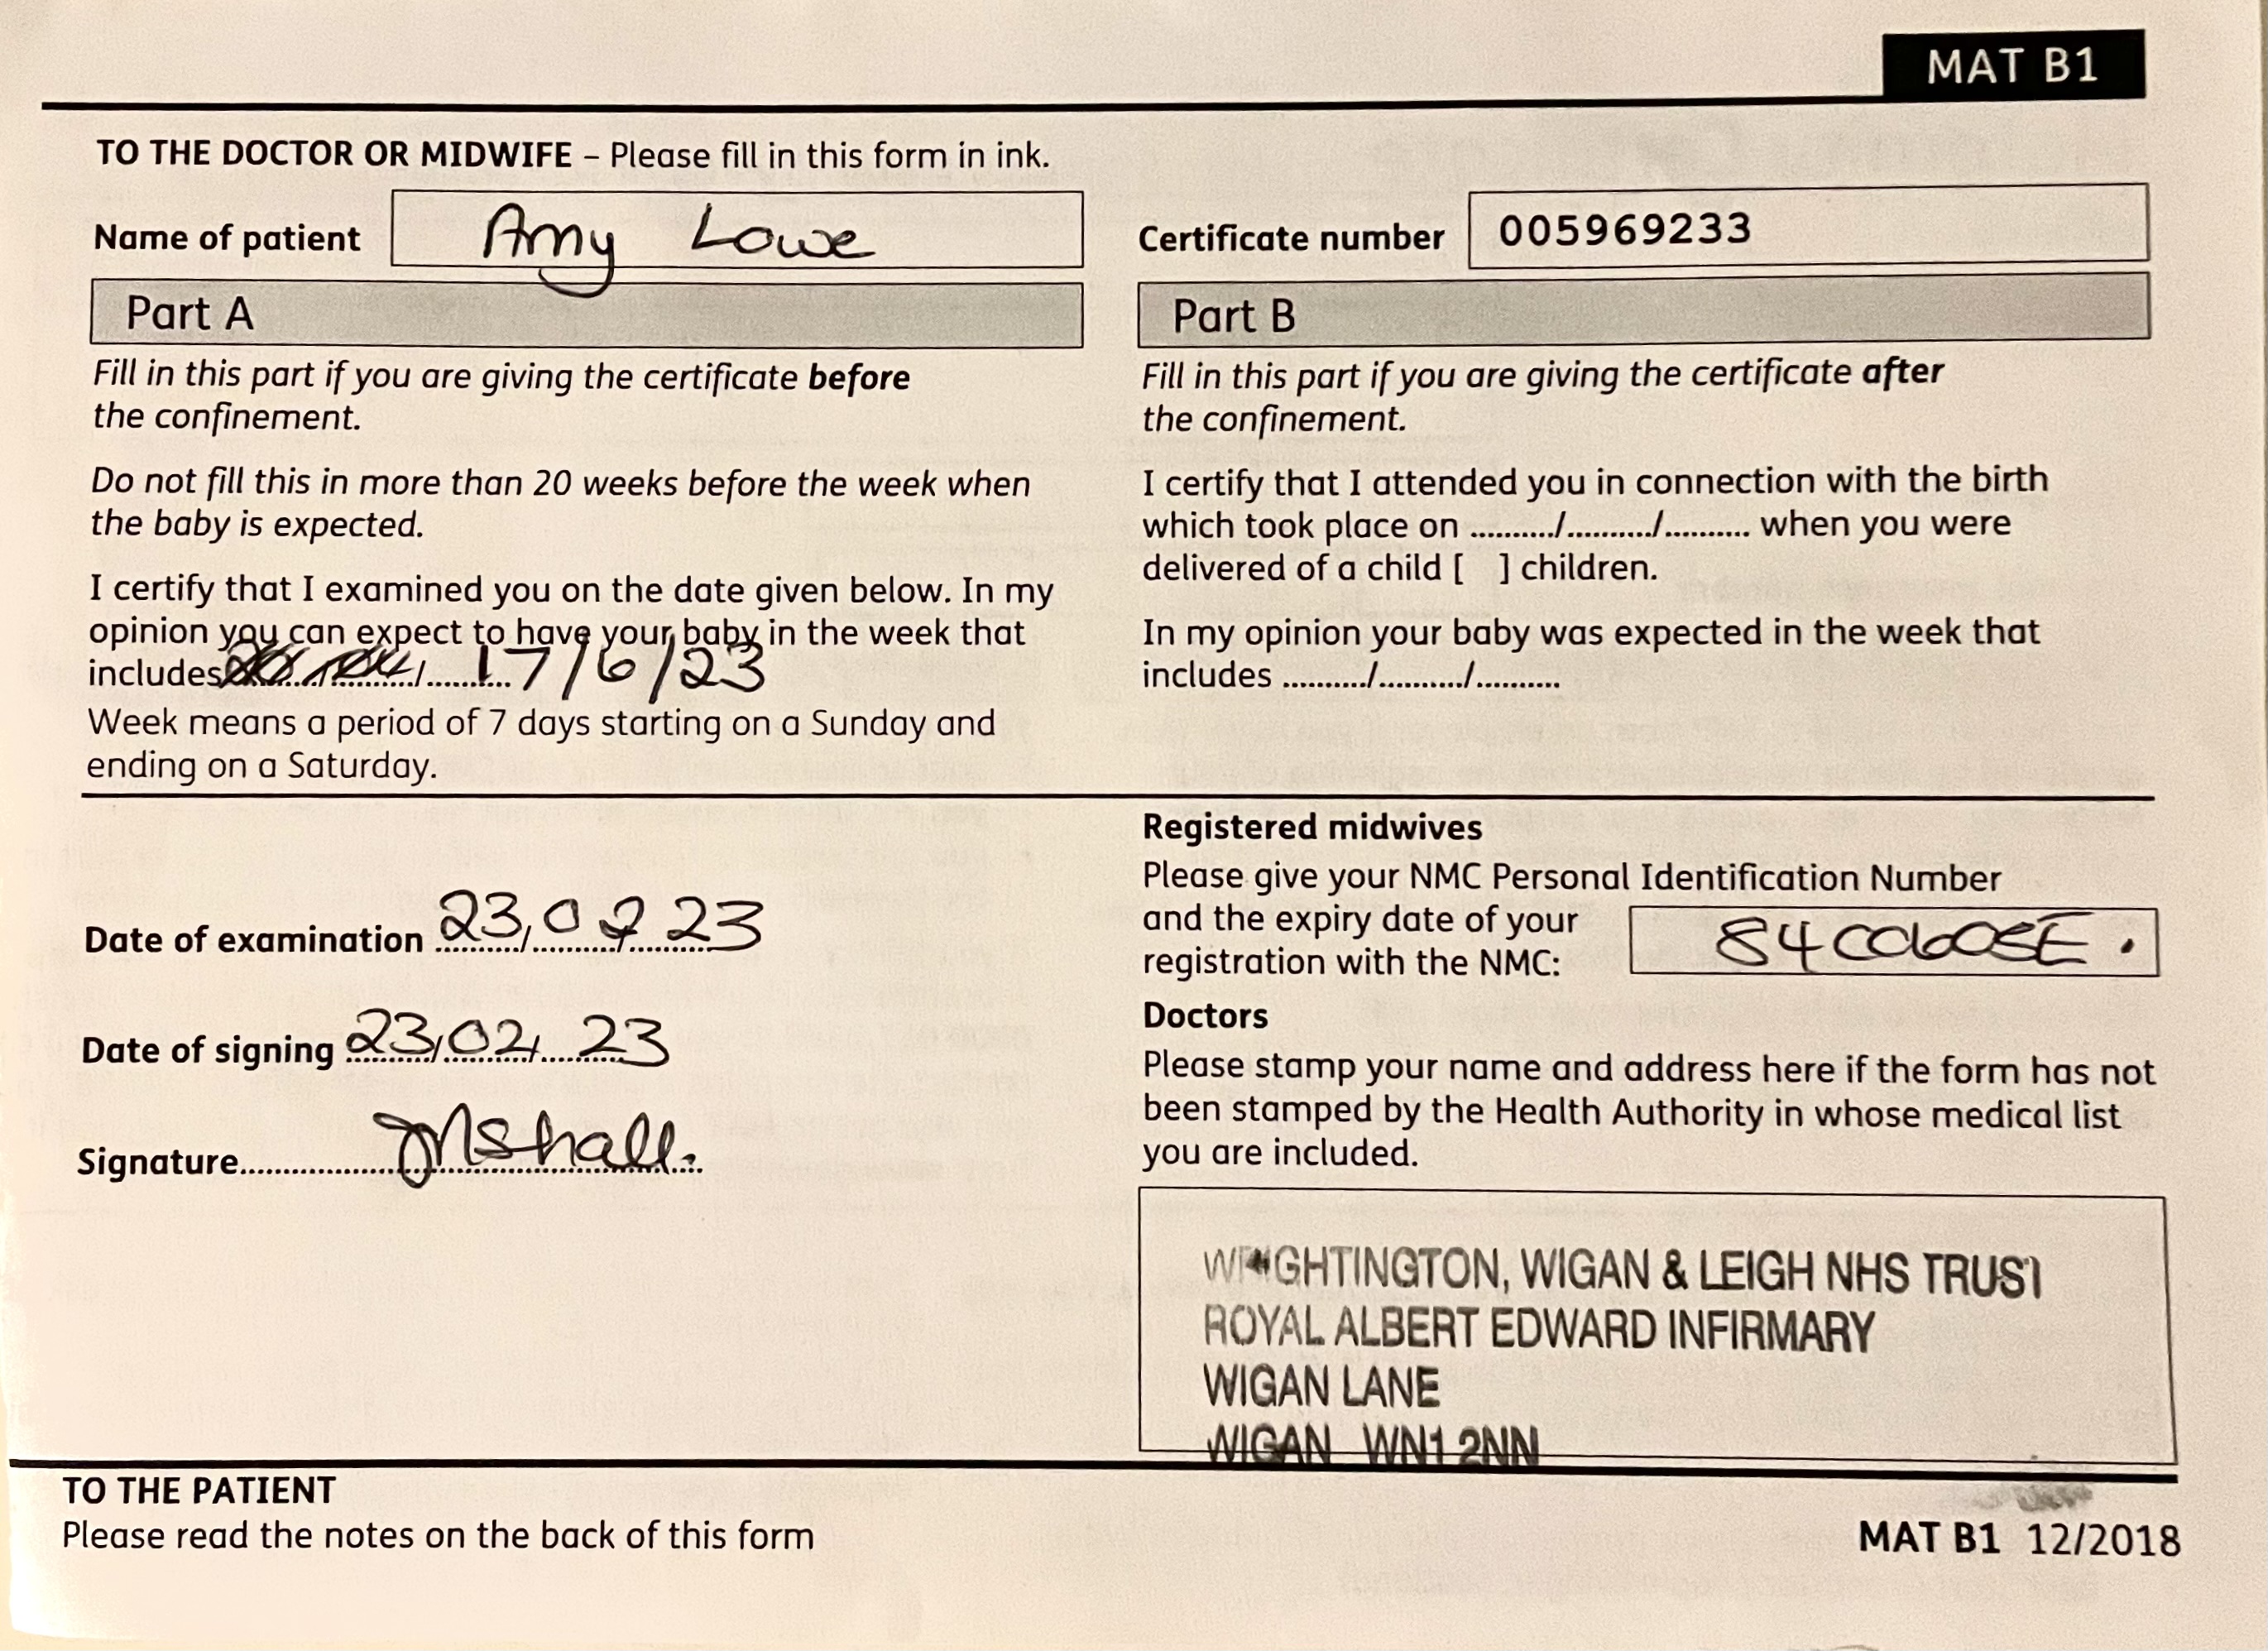 MAT B1
TO THE DOCTOR OR MIDWIFE – Please fill in this form in ink.
Name of patient Amy Lowe
Certificate number 005969233
Part A
Fill in this part if you are giving the certificate before
the confinement.
Do not fill this in more than 20 weeks before the week when
the baby is expected.
I certify that I examined you on the date given below. In my
opinion you can expect to have your baby in the week that
includes ........../........../.......... 17/6/23
Week means a period of 7 days starting on a Sunday and
ending on a Saturday.
Part B
Fill in this part if you are giving the certificate after
the confinement.
I certify that I attended you in connection with the birth
which took place on ........../........../.......... when you were
delivered of a child [ ] children.
In my opinion your baby was expected in the week that
includes ........../........../..........
Date of examination 23/02/23
Date of signing 23/02/23
Signature
Registered midwives
Please give your NMC Personal Identification Number
and the expiry date of your
registration with the NMC:
Doctors
Please stamp your name and address here if the form has not
been stamped by the Health Authority in whose medical list
you are included.
WRIGHTINGTON, WIGAN & LEIGH NHS TRUST
ROYAL ALBERT EDWARD INFIRMARY
WIGAN LANE
WIGAN WN1 2NN
TO THE PATIENT
Please read the notes on the back of this form
MAT B1 12/2018